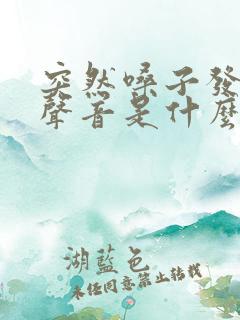 突然嗓子發
聲音是什麼
湖藍色
未经同意禁止转载